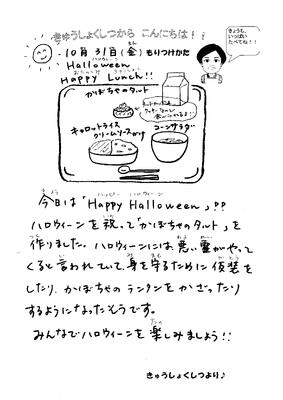 きゅうしょくしつから こんにちは!!
きょうも、
いっぱい
たべてね!!
10月31日(金)もりつけかた
Halloween
Happy Lunch!!
かぼちゃのタルト
キャロットライス
クリームソースがけ
コーンサラダ
今日は「Happy Halloween」!!
ハロウィーンを祝って「かぼちゃのタルト」を
作りました。ハロウィーンには、悪い霊がやって
くると言われていて、身を守るために仮装を
したり、かぼちゃのランタンをかざったり
するようになったそうです。
みんなでハロウィーンを楽しみましょう!!
きゅうしょくしつより♪